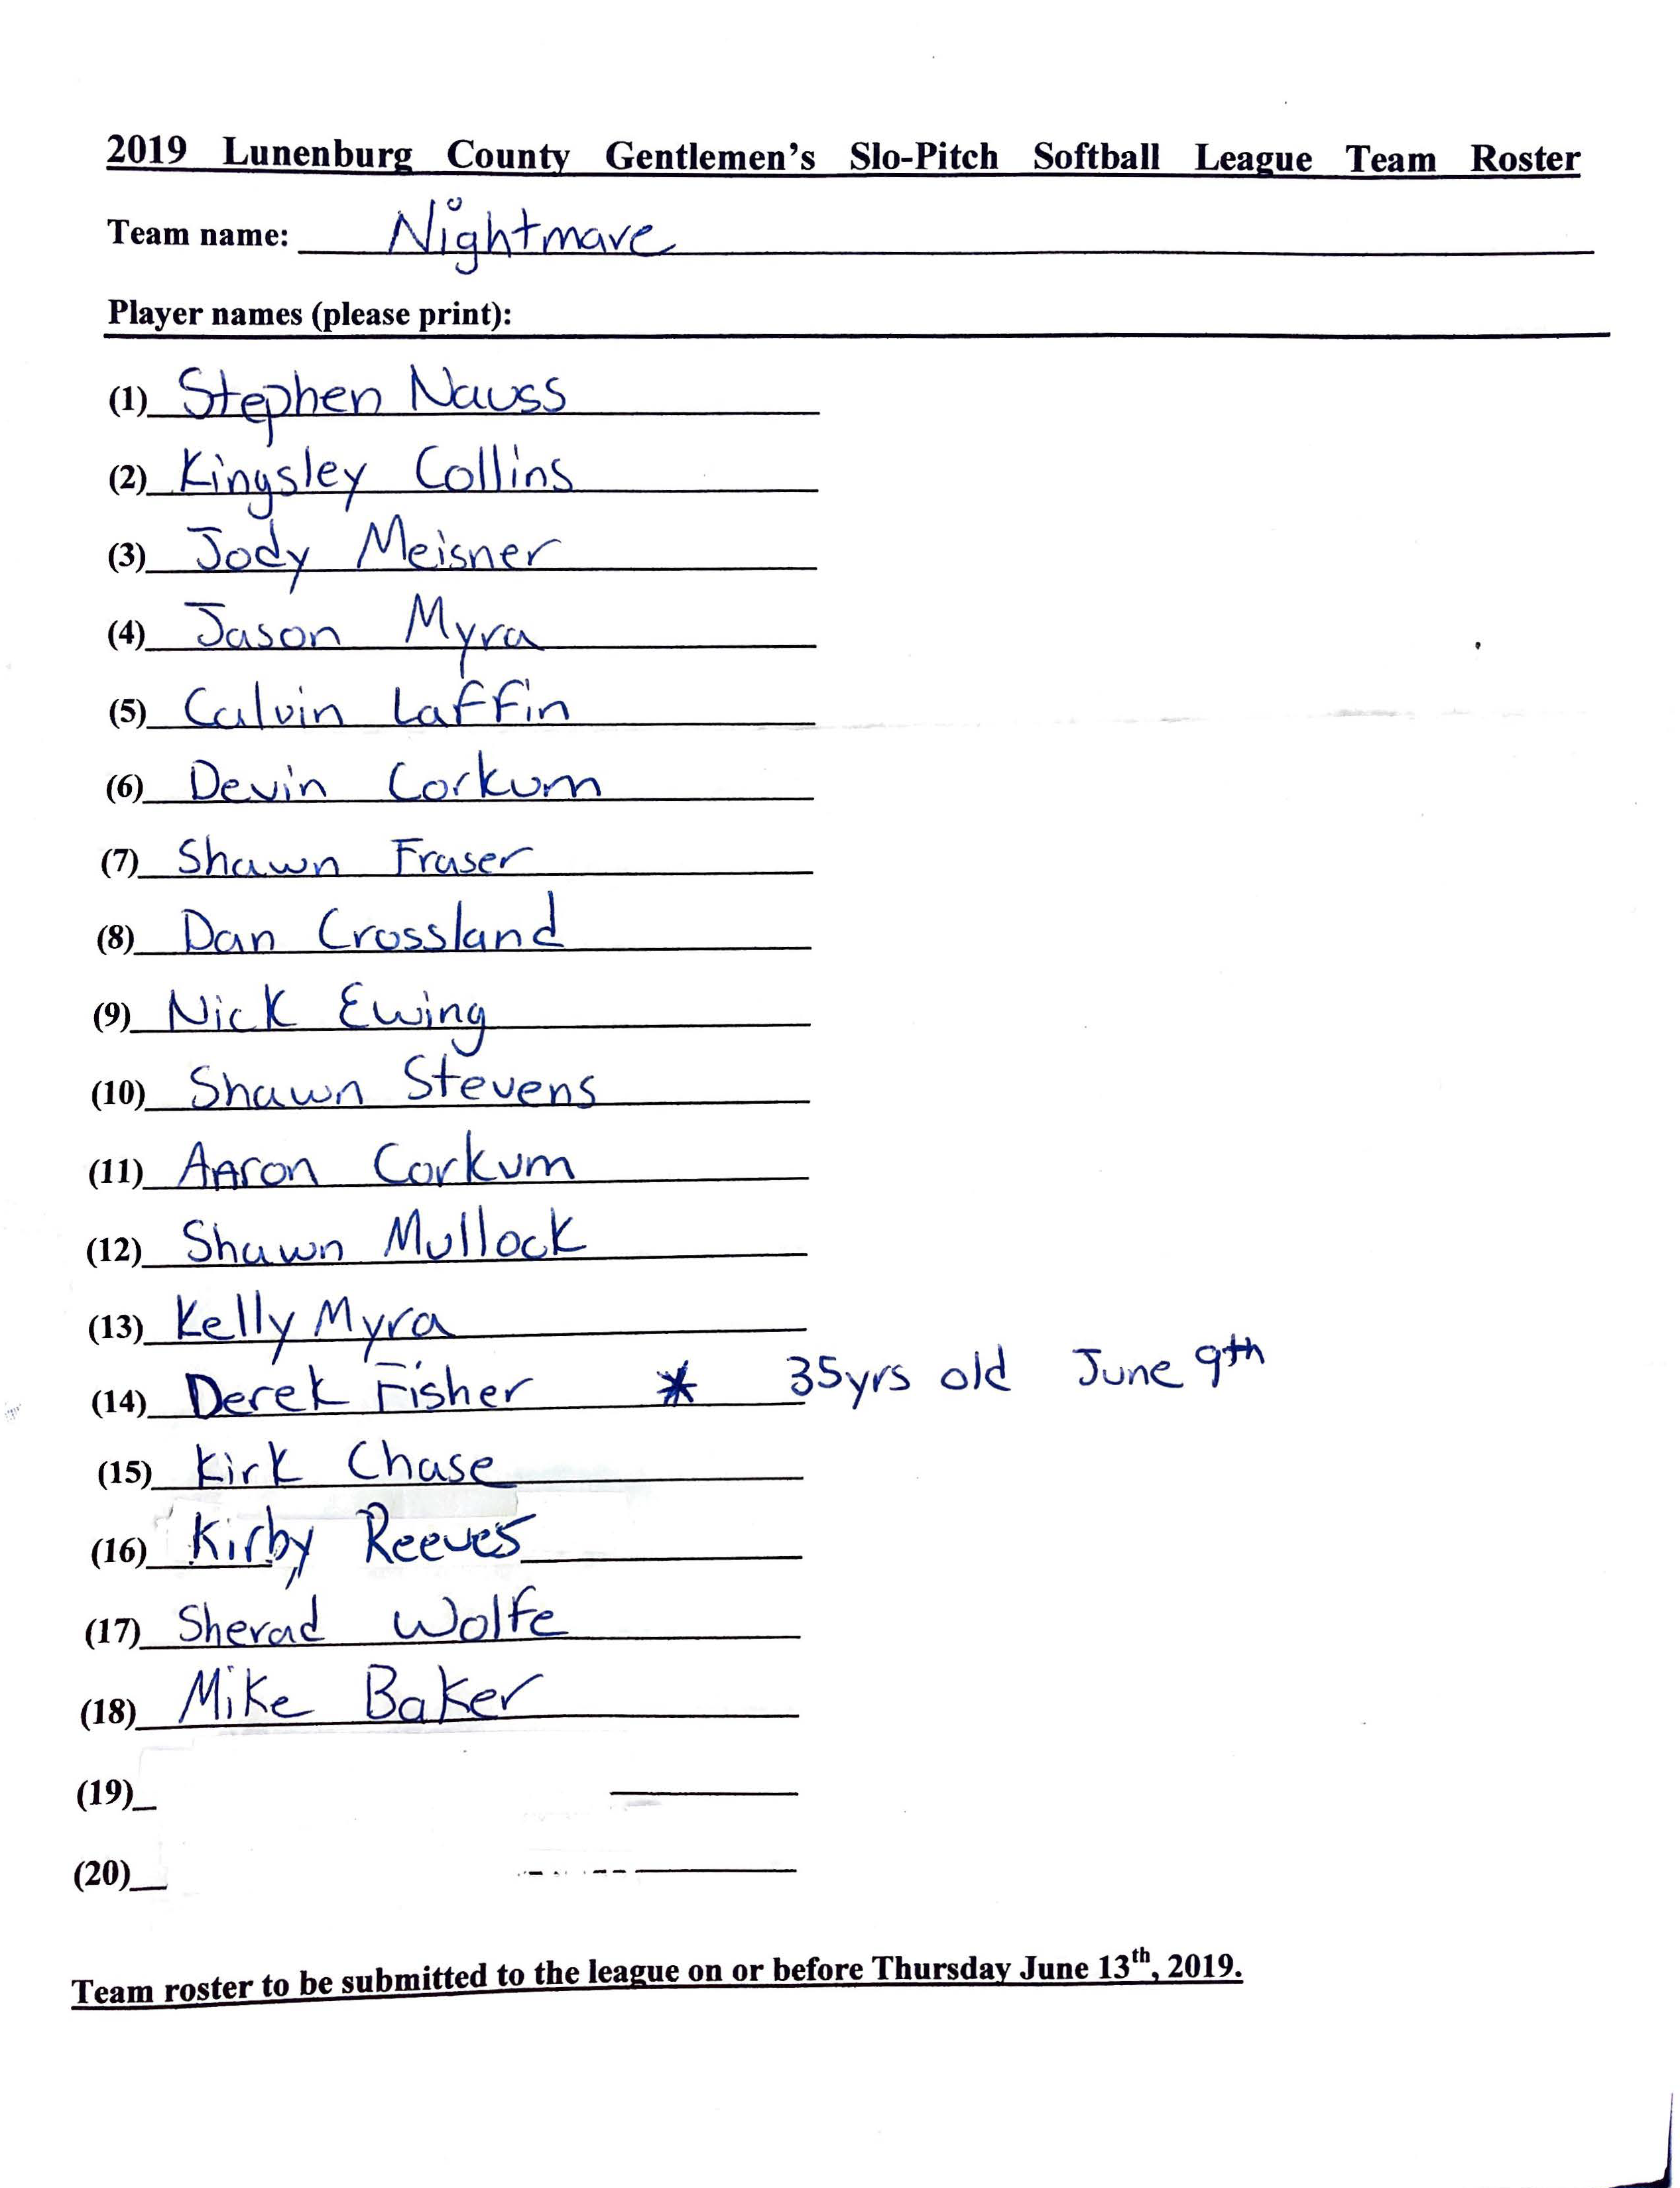 2019 Lunenburg County Gentlemen's Slo-Pitch Softball League Team Roster
Team name: Nightmare
Player names (please print):
(1) Stephen Nauss
(2) Kingsley Collins
(3) Jody Meisner
(4) Jason Myra
(5) Calvin Laffin
(6) Devin Corkum
(7) Shawn Fraser
(8) Dan Crossland
(9) Nick Ewing
(10) Shawn Stevens
(11) Aaron Corkum
(12) Shawn Mullock
(13) Kelly Myra
(14) Derek Fisher * 35yrs old June 9th
(15) Kirk Chase
(16) Kirby Reeves
(17) Sherad Wolfe
(18) Mike Baker
(19)
(20)
Team roster to be submitted to the league on or before Thursday June 13th, 2019.